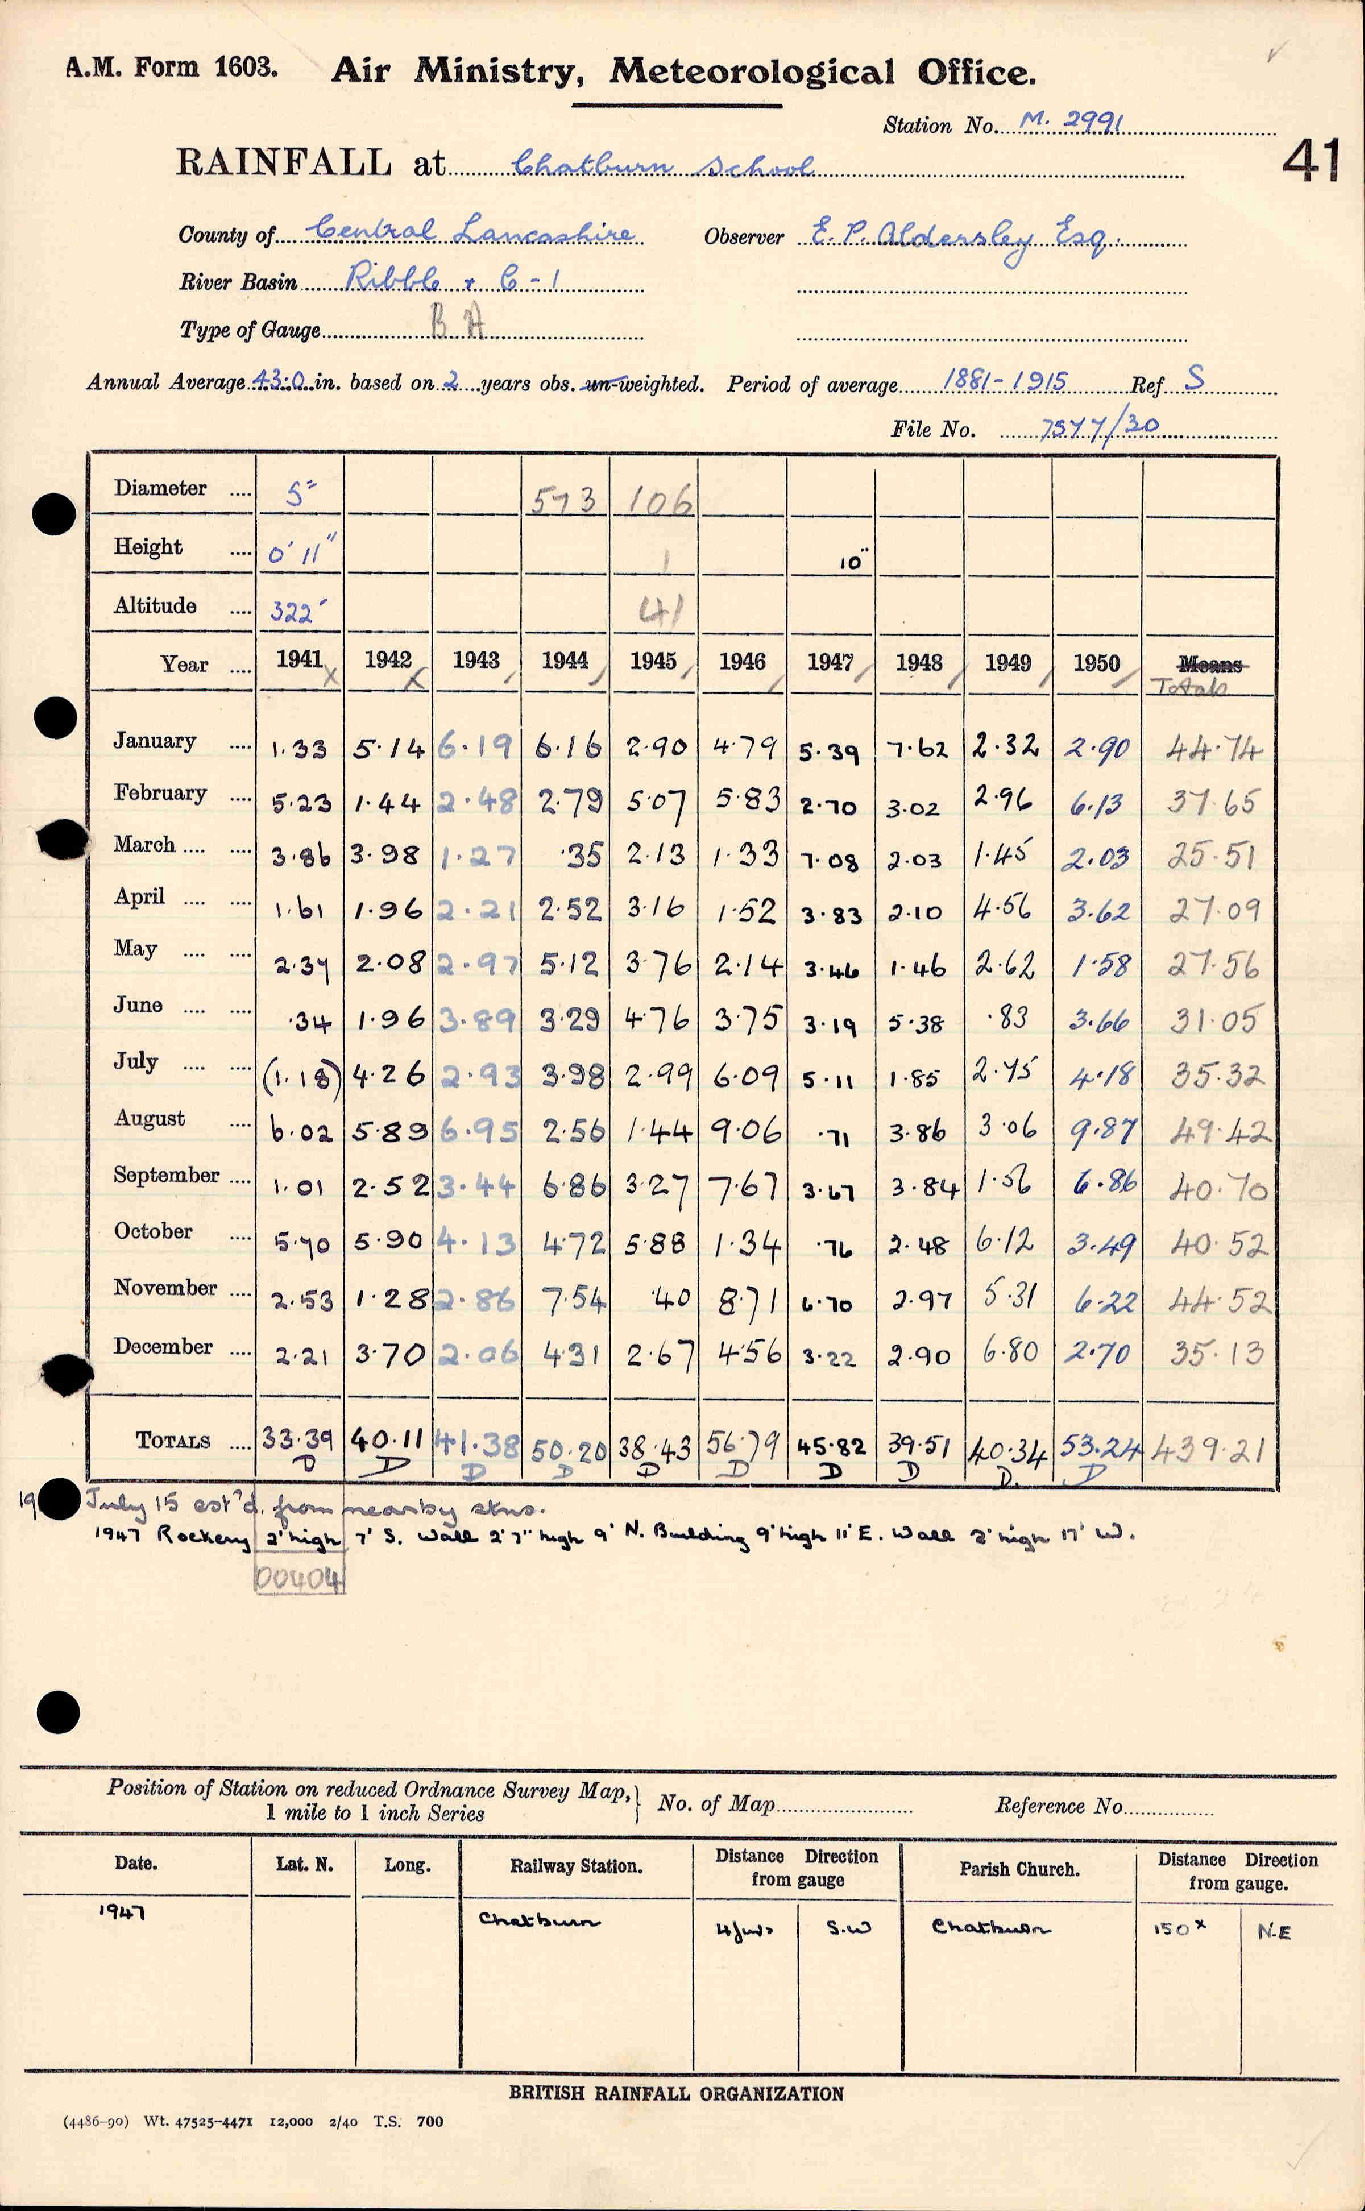 A.M. Form 1603. Air Ministry, Meteorological Office.
Station No. M. 2991
41
RAINFALL at Chatburn School
County of Central Lancashire Observer E. P. Aldersley Esq.
River Basin Ribble + C-1
Type of Gauge B A
Annual Average 43.0 in. based on 2 years obs. un-weighted. Period of average 1881-1915 Ref S
File No. 7577/30
Diameter .... 5" 573 106
Height .... 0' 11" 1 10"
Altitude .... 322' 41
Year .... 1941 1942 1943 1944 1945 1946 1947 1948 1949 1950 Means Totals
January .... 1.33 5.14 6.19 6.16 2.90 4.79 5.39 7.62 2.32 2.90 44.74
February .... 5.23 1.44 2.48 2.79 5.07 5.83 2.70 3.02 2.96 6.13 37.65
March .... .... 3.86 3.98 1.27 .35 2.13 1.33 7.08 2.03 1.45 2.03 25.51
April .... .... 1.61 1.96 2.21 2.52 3.16 1.52 3.83 2.10 4.56 3.62 27.09
May .... .... 2.37 2.08 2.97 5.12 3.76 2.14 3.46 1.46 2.62 1.58 27.56
June .... .... .34 1.96 3.89 3.29 4.76 3.75 3.19 5.38 .83 3.66 31.05
July .... .... (1.18) 4.26 2.93 3.98 2.99 6.09 5.11 1.85 2.75 4.18 35.32
August .... 6.02 5.89 6.95 2.56 1.44 9.06 .71 3.86 3.06 9.87 49.42
September .... 1.01 2.52 3.44 6.86 3.27 7.67 3.67 3.84 1.56 6.86 40.70
October .... 5.70 5.90 4.13 4.72 5.88 1.34 .76 2.48 6.12 3.49 40.52
November .... 2.53 1.28 2.86 7.54 .40 8.71 6.70 2.97 5.31 6.22 44.52
December .... 2.21 3.70 2.06 4.31 2.67 4.56 3.22 2.90 6.80 2.70 35.13
TOTALS .... 33.39 40.11 41.38 50.20 38.43 56.79 45.82 39.51 40.34 53.24 439.21
D D D D D D D D D. D
19 July 15 est'd. from nearby stns.
1947 Rockery 2' high 7' S. Wall 2' 7" high 9' N. Building 9' high 11' E. Wall 2' high 17' W.
00404
Position of Station on reduced Ordnance Survey Map,} No. of Map Reference No.
1 mile to 1 inch Series
Date. Lat. N. Long. Railway Station. Distance Direction from gauge Parish Church. Distance Direction from gauge.
1947 Chatburn S.W Chatburn 150x N.E
BRITISH RAINFALL ORGANIZATION
(4486-90) Wt. 47525-4471 12,000 2/40 T.S. 700